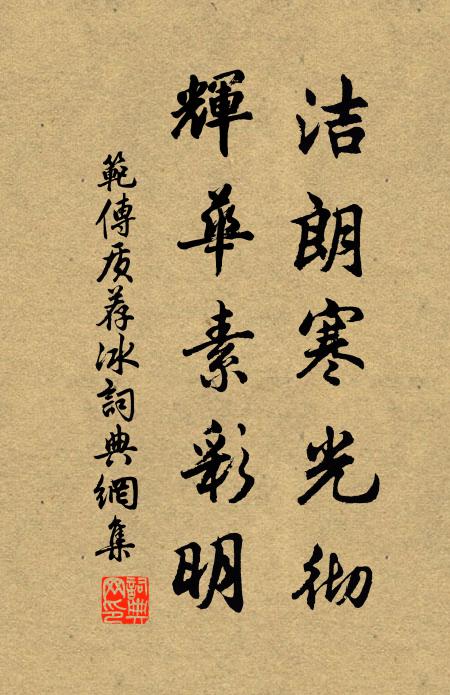 洁朗寒光彻
輝華素彩明
範傳质荐冰詞典網集
詞典网印